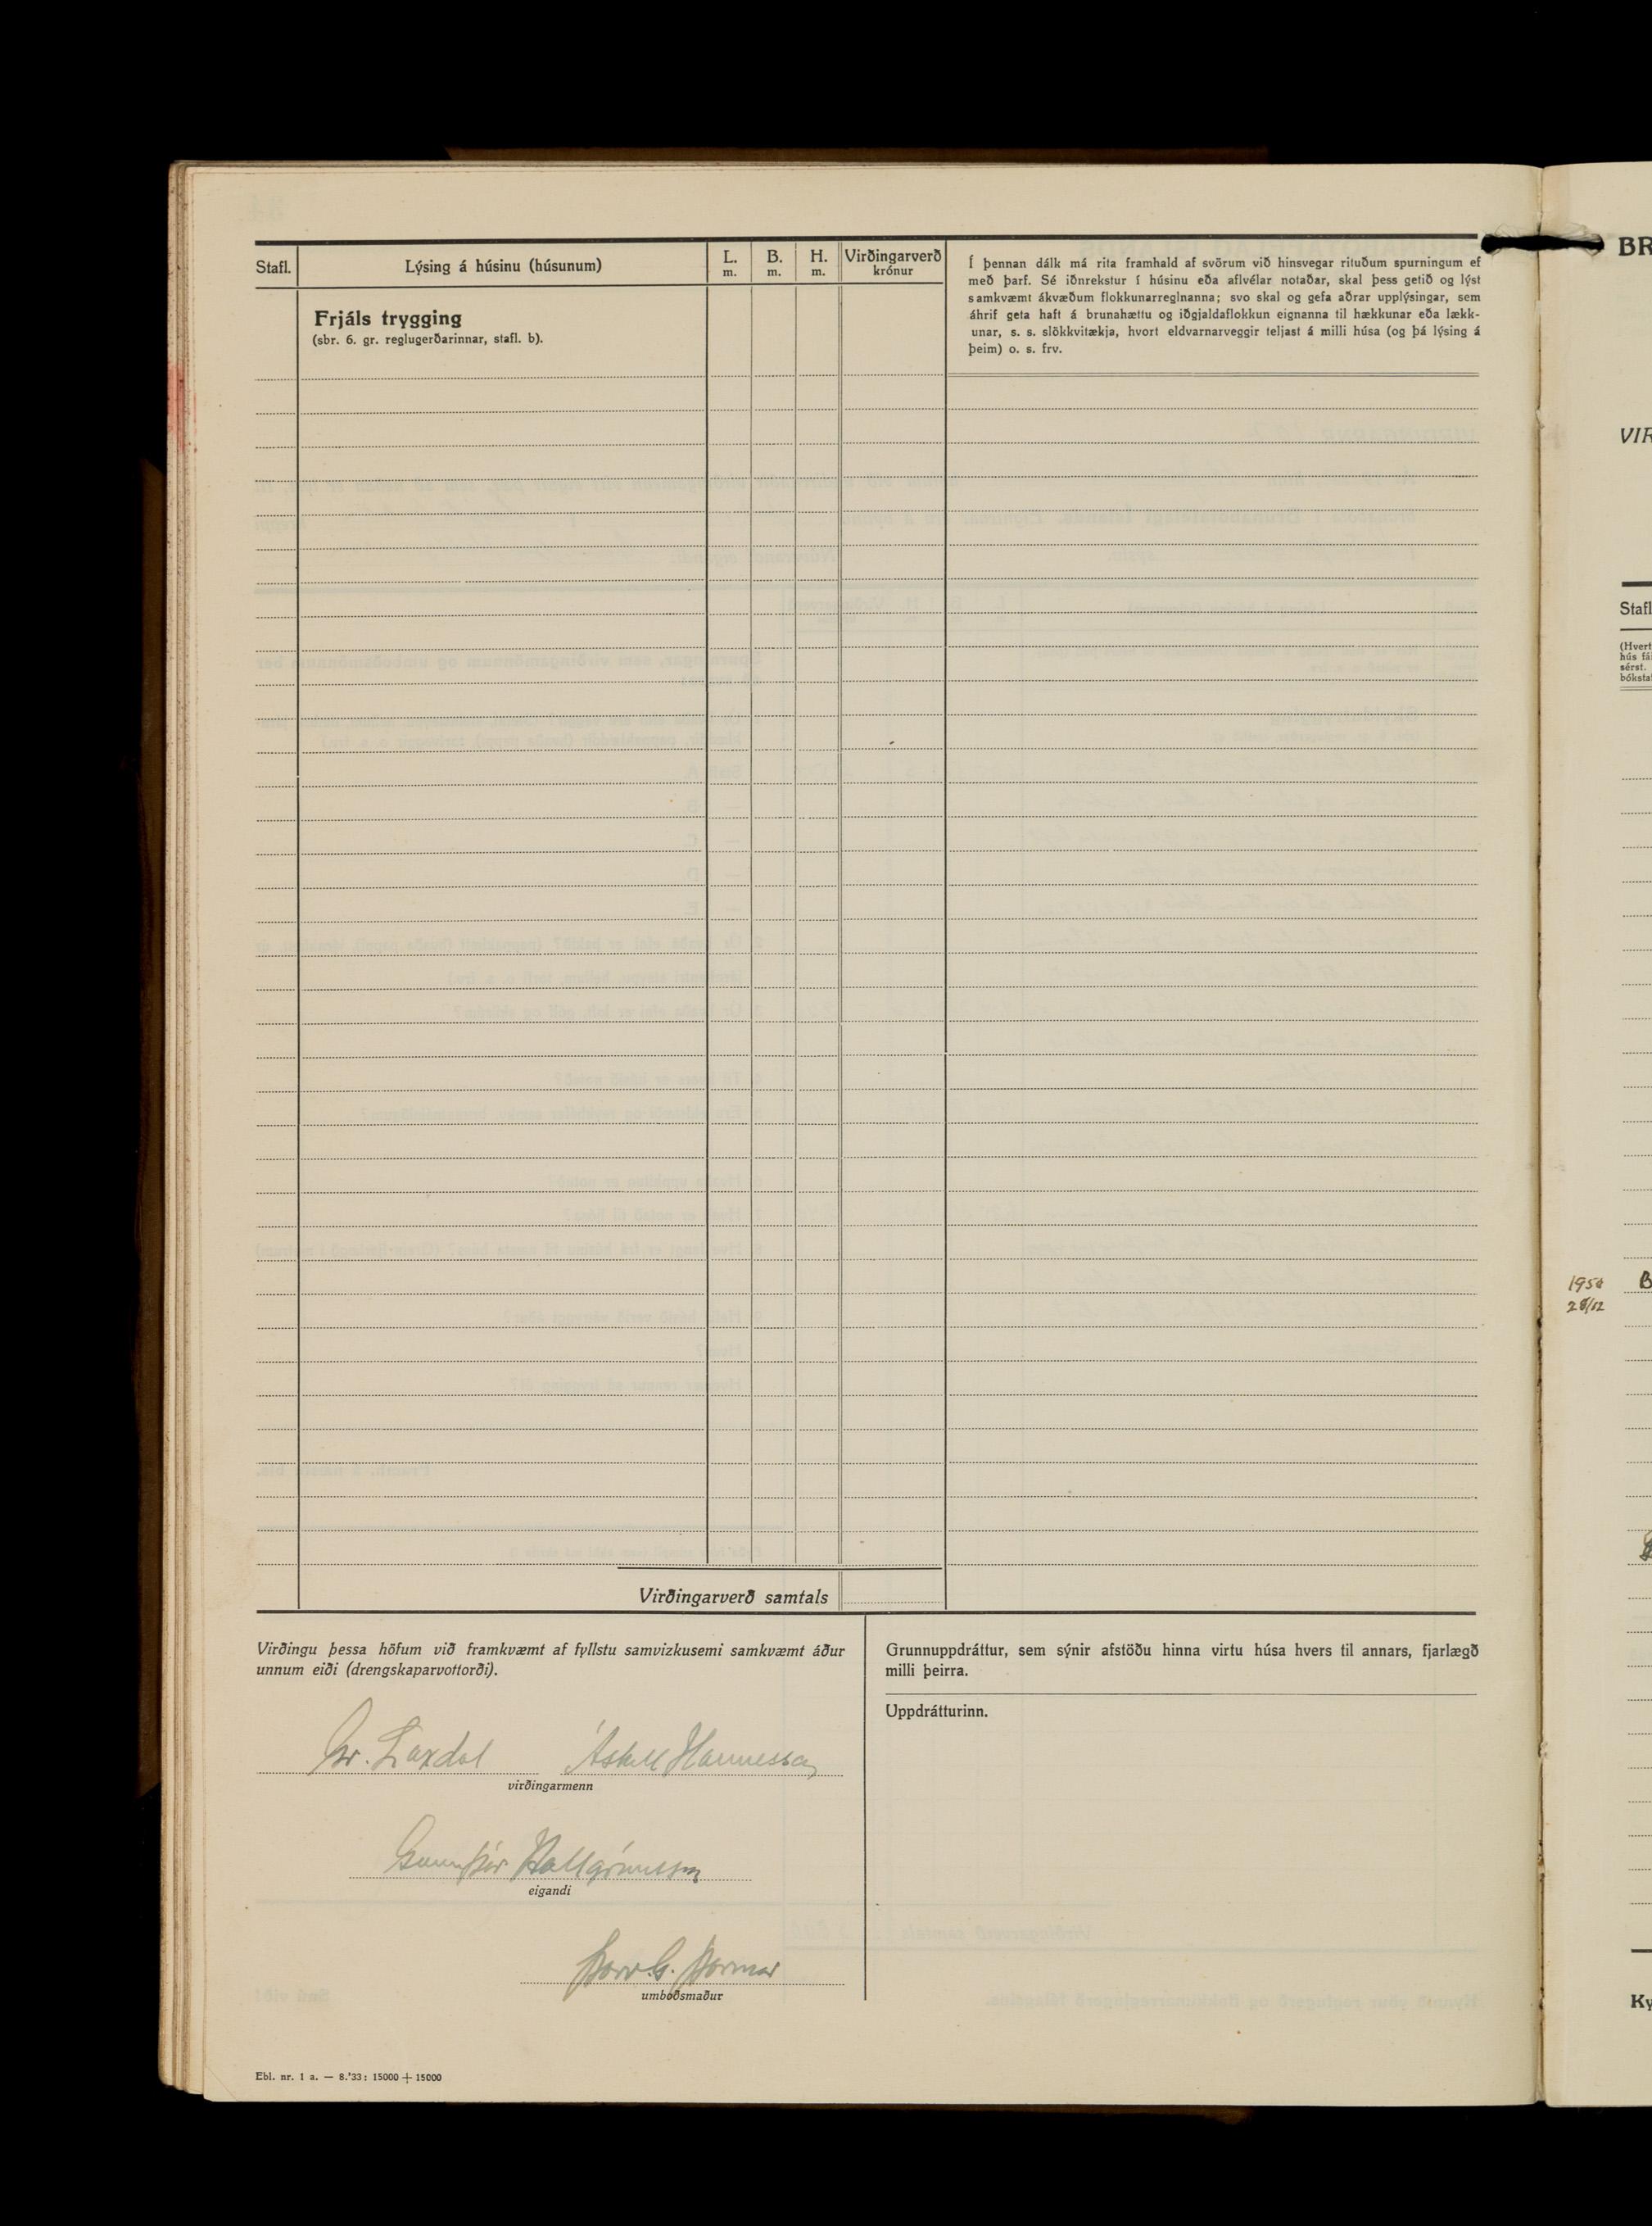 Stafl.
Lýsing á húsinu (húsunum)
L.
m.
B.
m.
H.
m.
Virðingarverð
krónur
Frjáls trygging
(sbr. 6. gr. reglugerðarinnar, stafl. b).
Í þennan dálk má rita framhald af svörum við hinsvegar rituðum spurningum ef
með þarf. Sé iðnrekstur í húsinu eða aflvélar notaðar, skal þess getið og lýst
samkvæmt ákvæðum flokkunarreglnanna; svo skal og gefa aðrar upplýsingar, sem
áhrif geta haft á brunahættu og iðgjaldaflokkun eignanna til hækkunar eða lækk-
unar, s. s. slökkvitækja, hvort eldvarnarveggir teljast á milli húsa (og þá lýsing á
þeim) o. s. frv.
Virðingarverð samtals
Virðingu þessa höfum við framkvæmt af fyllstu samvizkusemi samkvæmt áður
unnum eiði (drengskaparvottorði).
Gr. Laxdal Áskell Hannesson
virðingarmenn
Gunnþór Hallgrímsson
eigandi
Þorv. G. Þormar
umboðsmaður
Grunnuppdráttur, sem sýnir afstöðu hinna virtu húsa hvers til annars, fjarlægð
milli þeirra.
Uppdrátturinn.
Ebl. nr. 1 a. — 8.'33: 15000 + 15000
BR
VIR
Stafl
(Hvert
hús fá
sérst.
bóksta
B
Ky